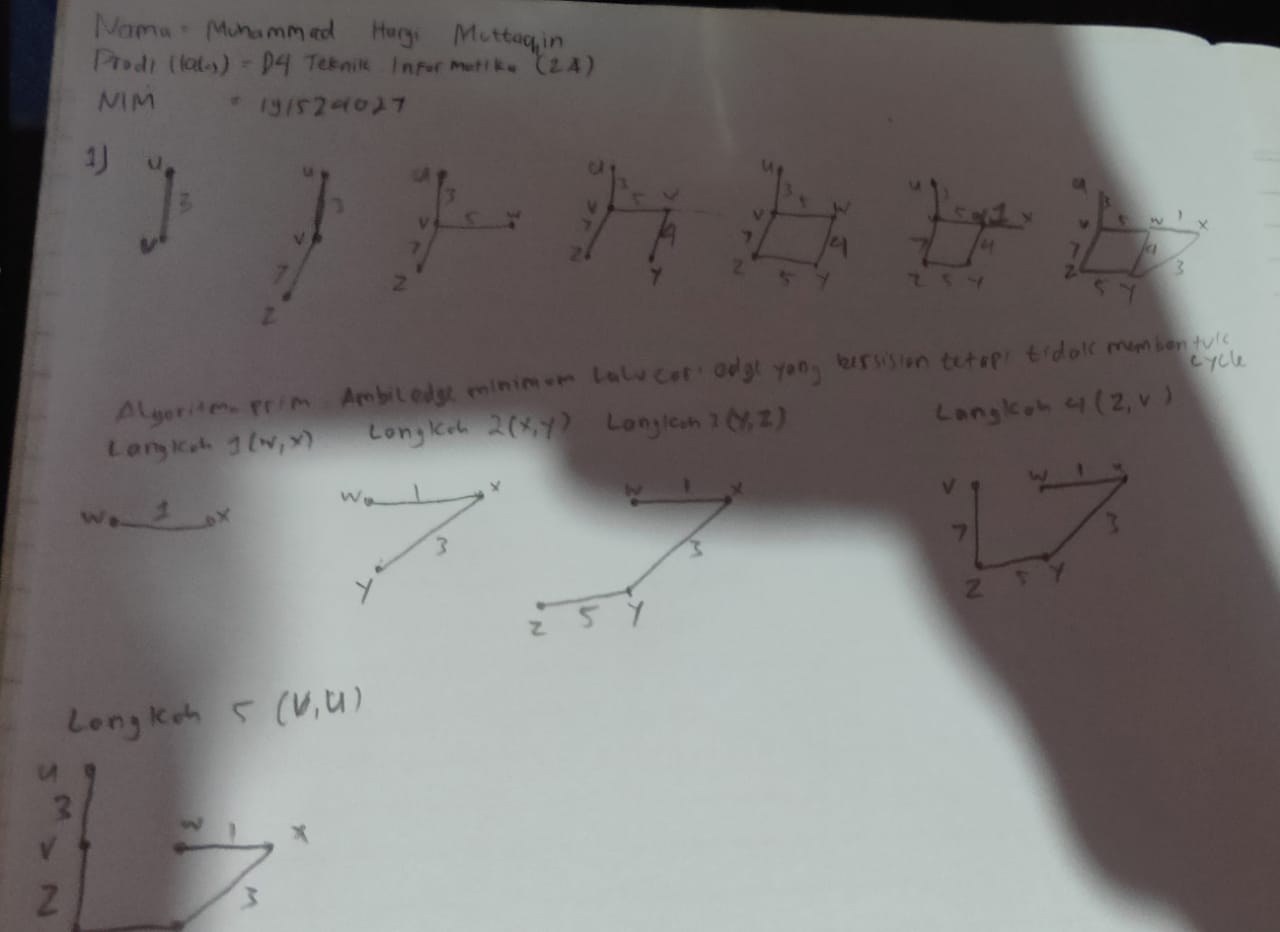 Nama = Muhammad Hargi Muttaqin
Prodi (kelas) = D4 Teknik Informatika (2A)
NIM = 191524027
1)
u 3 v
u 3 v 7 z
u 3 v 5 w 7 z
u 3 v 5 v 7 4 z y
u 3 v 5 w 7 4 z 5 y
u 3 5 w 1 x 7 4 z 5 y
u 3 v 5 w 1 x 7 4 z 5 y 3
Algoritma prim Ambil edge minimum Lalu cari edge yang bersisian tetapi tidak membentuk
cycle
Langkah 1 (w,x) Langkah 2 (x,y) Langkah 3 (y,z) Langkah 4 (z,v)
w 1 x
w 1 x 3 y
w 1 x 3 z 5 y
v w 1 x 7 3 z 5 y
Langkah 5 (v,u)
u
3 w 1 x
v
z 3